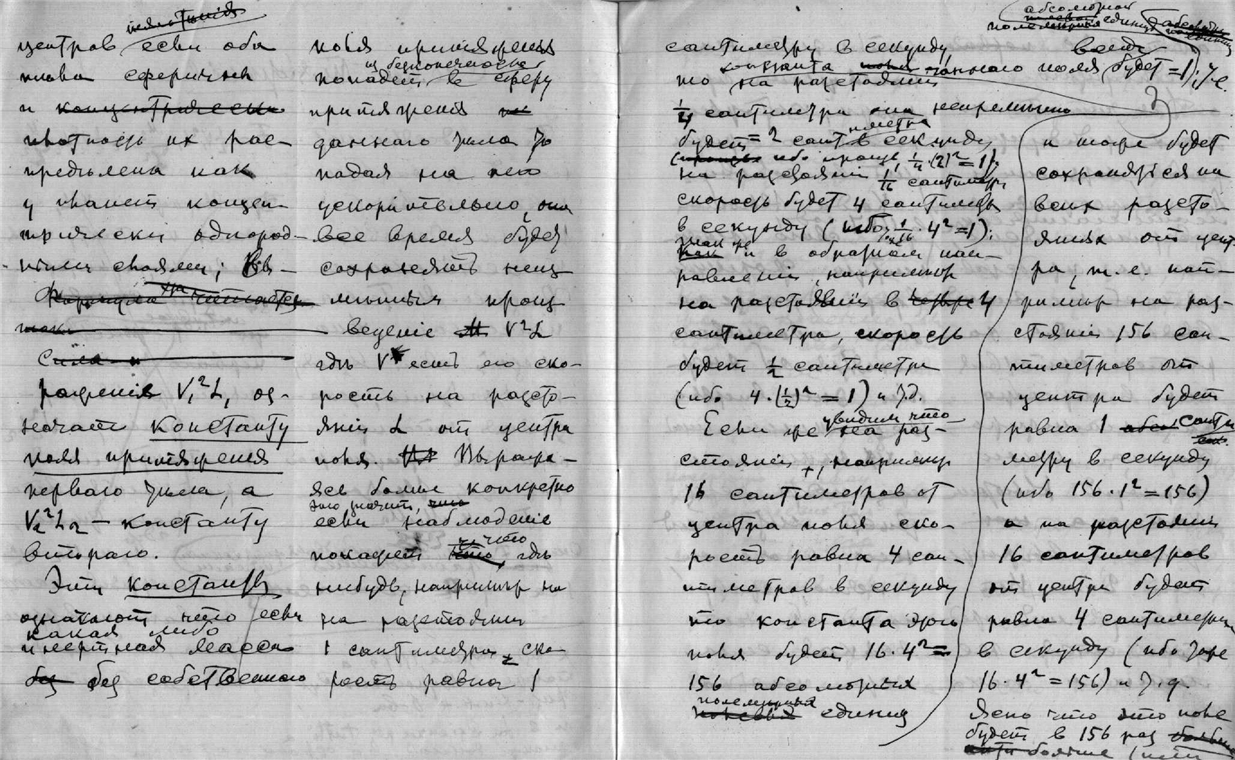 центров если оба
шара сферичны
и
плотность их рас-
предѣлена как
у планет концен-
трически однород-
ными слоями;
раженія V₁²L₁ оз-
начает Константу
поля притяженія
перваго тѣла, а
V₂²L₂ — константу
второго.
Эти константы
означают что если
какая либо
инертная масса
без собственнаго
поля притяженія
из безконечности
попадет в сферу
притяженія
даннаго тѣла то
падая на него
ускорительно, она
все время будет
сохранять неиз-
мѣнным произ-
ведение V²L
гдѣ V есть его ско-
рость на разсто-
яніи L от центра
поля. Выража-
ясь болѣе конкретно
это значит,
если наблюдение
покажет что гдѣ
нибудь, например на
на разстоянии
1 сантиметра ско-
рость равна 1
сантиметру в секунду
то константа даннаго поля будет =1; т.е.
на разстоянии
¼ сантиметра она непремѣнно
будет = 2 сантиметра в секунду
ибо ¼·(2)² = 1),
на разстоянии 1/16 сантиметра
скорость будет 4 сантиметра
в секунду (ибо 1/16·4² = 1);
так же и в обратном нап-
равлении, например
на разстоянии в 4
сантиметра, скорость
будет ½ сантиметра
(ибо 4·(½)² = 1) и т.д.
Если же увидим что
на раз-
стоянии, например
16 сантиметров от
центра поля ско-
рость равна 4 сан-
тиметров в секунду
то константа этого
поля будет 16·4² =
156 абсолютных
единиц
и тоже будет
сохраняться на
всех разсто-
яниях от цент-
ра, т.е. нап-
ример на раз-
стоянии 156 сан-
тиметров от
центра будет
равна 1 санти-
метру в секунду
(ибо 156·1² = 156)
а на разстоянии
16 сантиметров
от центра будет
равна 4 сантиметра
в секунду (ибо тоже
16·4² = 156) и т.д.
Ясно что это поле
будет в 156 раз
больше